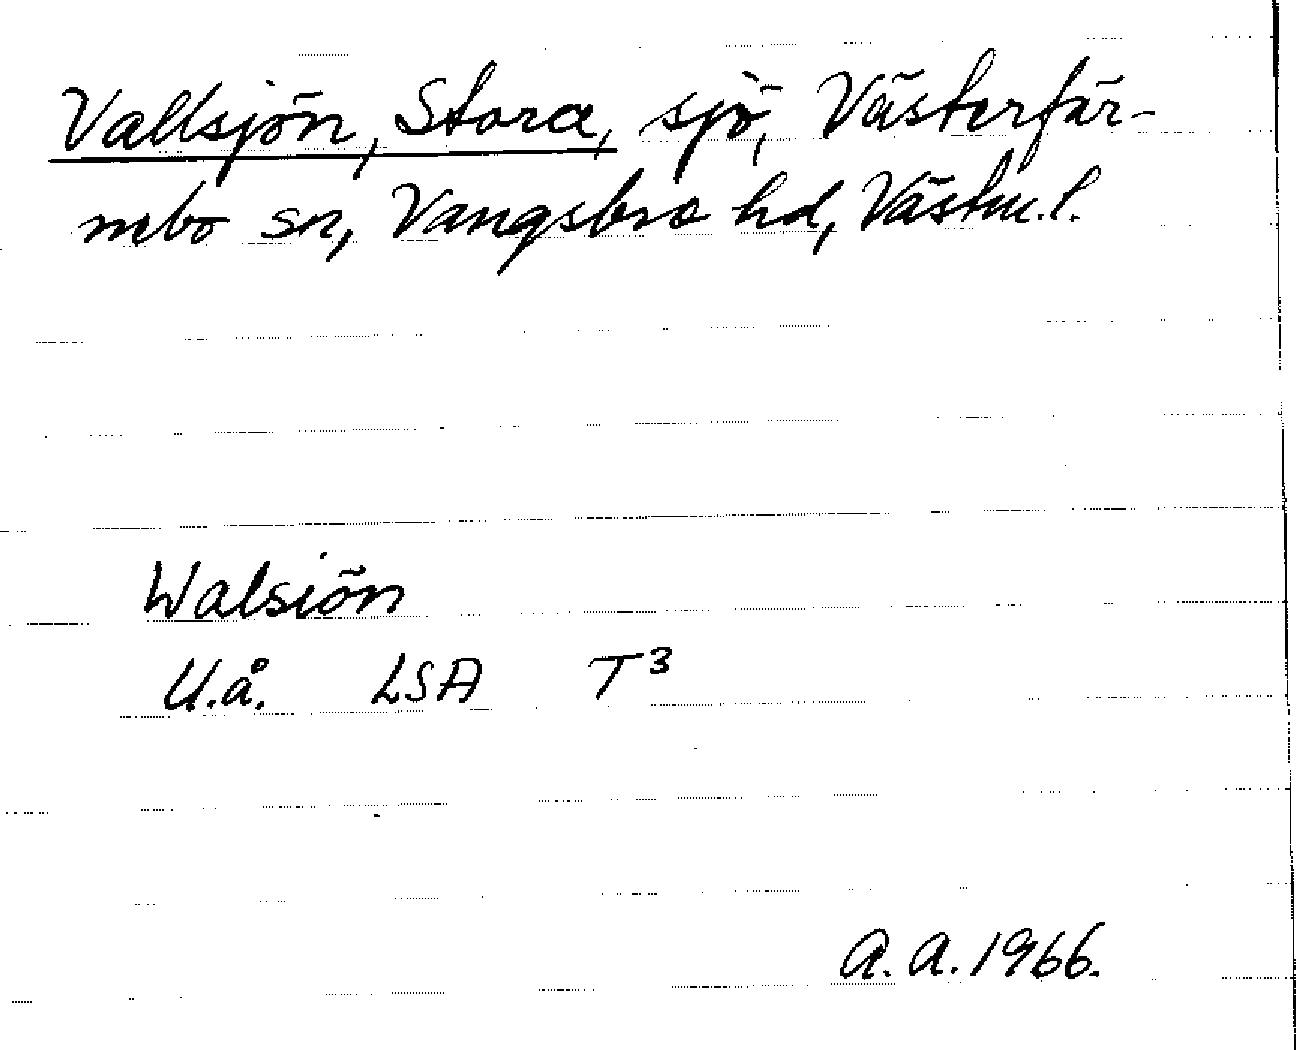 Vallsjön, Stora, sjö, Västerfär-
nebo sn, Vangsbro hd, Västm.l.
Walsiön
U.å. LSA T3
A.A. 1966.